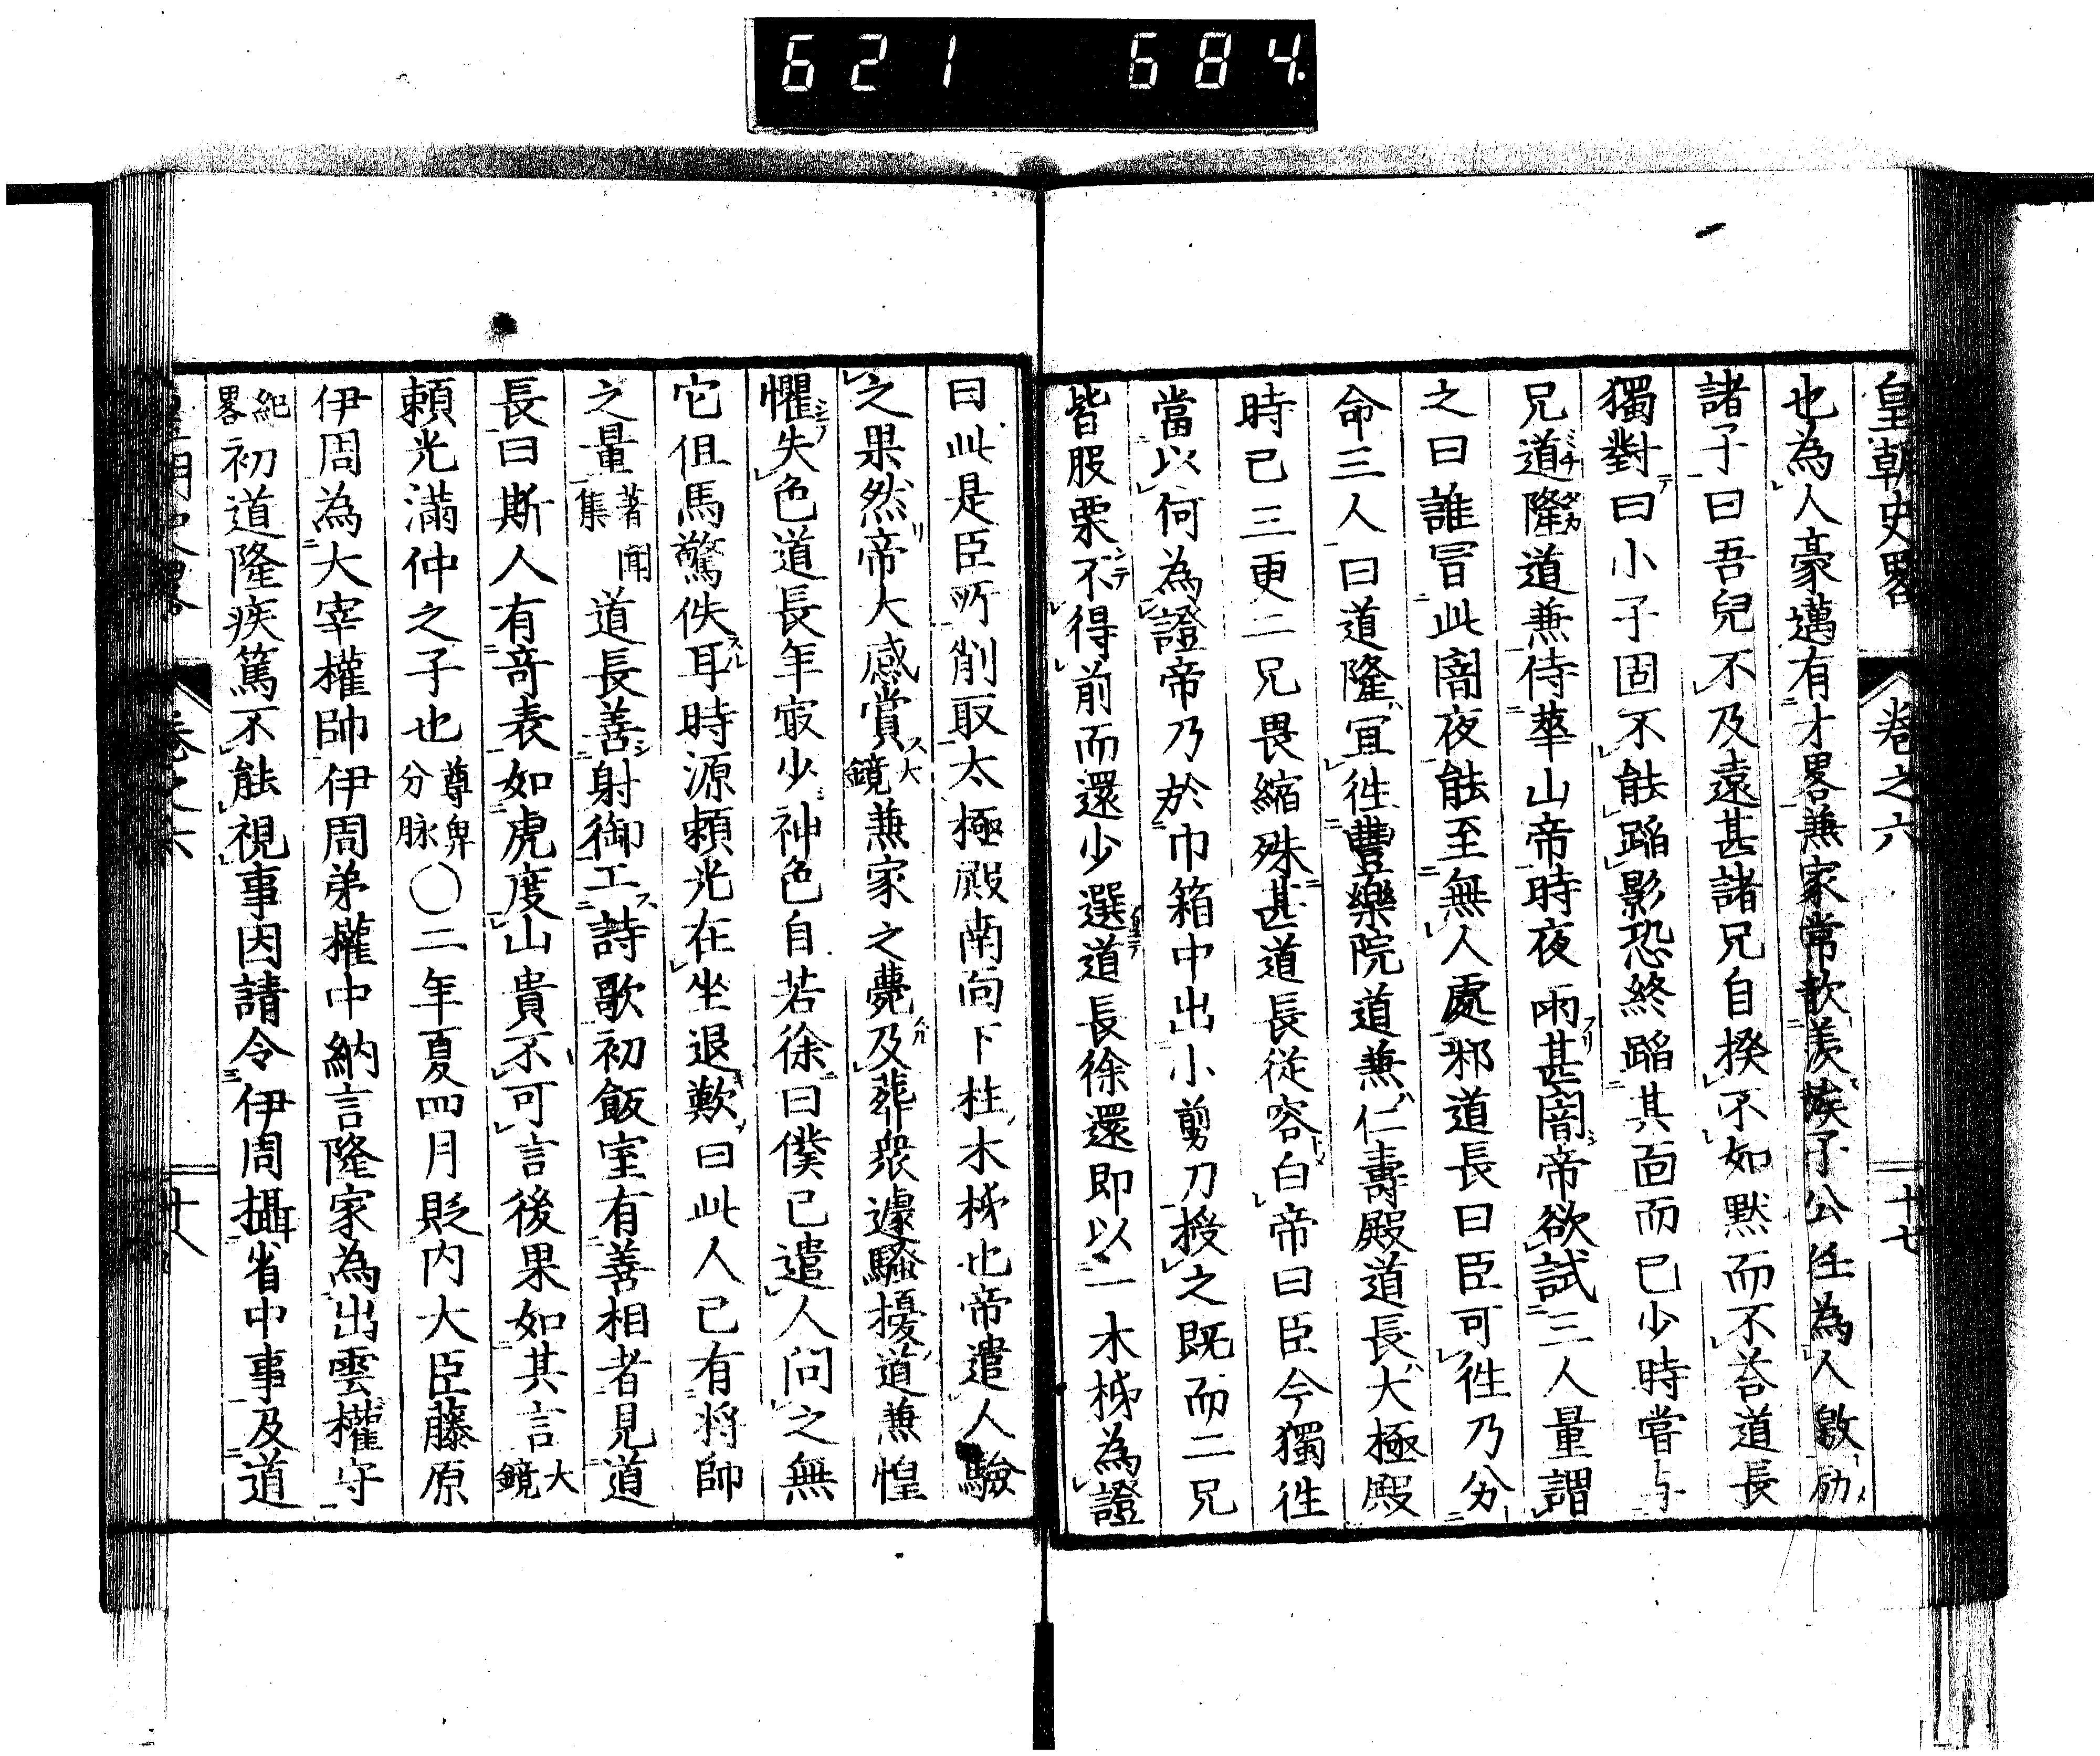 621 684
皇朝史畧 卷之六 十七
也為人豪邁有才畧兼家常歆羨族子公任為人敏勵
諸子曰吾兒不及遠甚諸兄自揆不如黙而不荅道長
獨對曰小子固不能蹈影恐終蹈其面而已少時甞与
兄道隆道兼侍華山帝時夜雨甚闇帝欲試三人量謂
之曰誰冒此闇夜能至無人處邪道長曰臣可徃乃分
命三人曰道隆宜徃豐樂院道兼仁壽殿道長大極殿
時已三更二兄畏縮殊甚道長従容白帝曰臣今獨徃
當以何為證帝乃於巾箱中出小剪刀授之既而二兄
皆股栗不得前而還少選道長徐還即以一木柹為證
曰此是臣所削取太極殿南向下柱木柹也帝遣人驗
之果然帝大感賞大鏡兼家之薨及葬衆遽騷擾道兼惶
懼失色道長年㝡少神色自若徐曰僕已遣人問之無
它但馬驚佚耳時源頼光在坐退歎曰此人已有将帥
之量著聞集道長善射御工詩歌初飯室有善相者見道
長曰斯人有奇表如虎度山貴不可言後果如其言大鏡
頼光滿仲之子也尊卑分脉〇二年夏四月貶内大臣藤原
伊周為大宰權帥伊周弟權中納言隆家為出雲權守
紀畧初道隆疾篤不能視事因請令伊周攝省中事及道